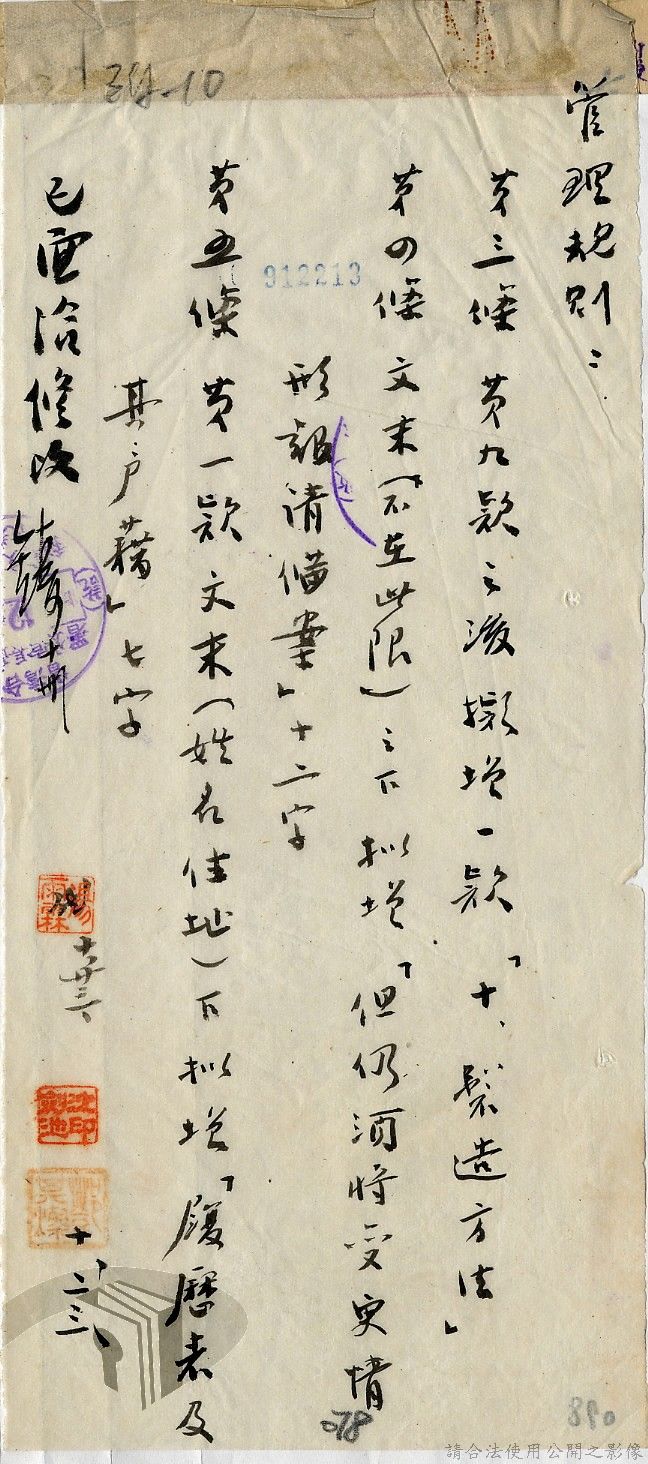 管理規則：
第三條 第九款之後擬增一款「十、製造方法」
第四條 文末（不在此限）之下擬增「但仍須將變更情
形報請備案」十二字
第五條 第一款文末（姓名住址）下擬增「履歷表及
其戶籍」七字
已面洽修改
912213
078
890
請合法使用公開之影像